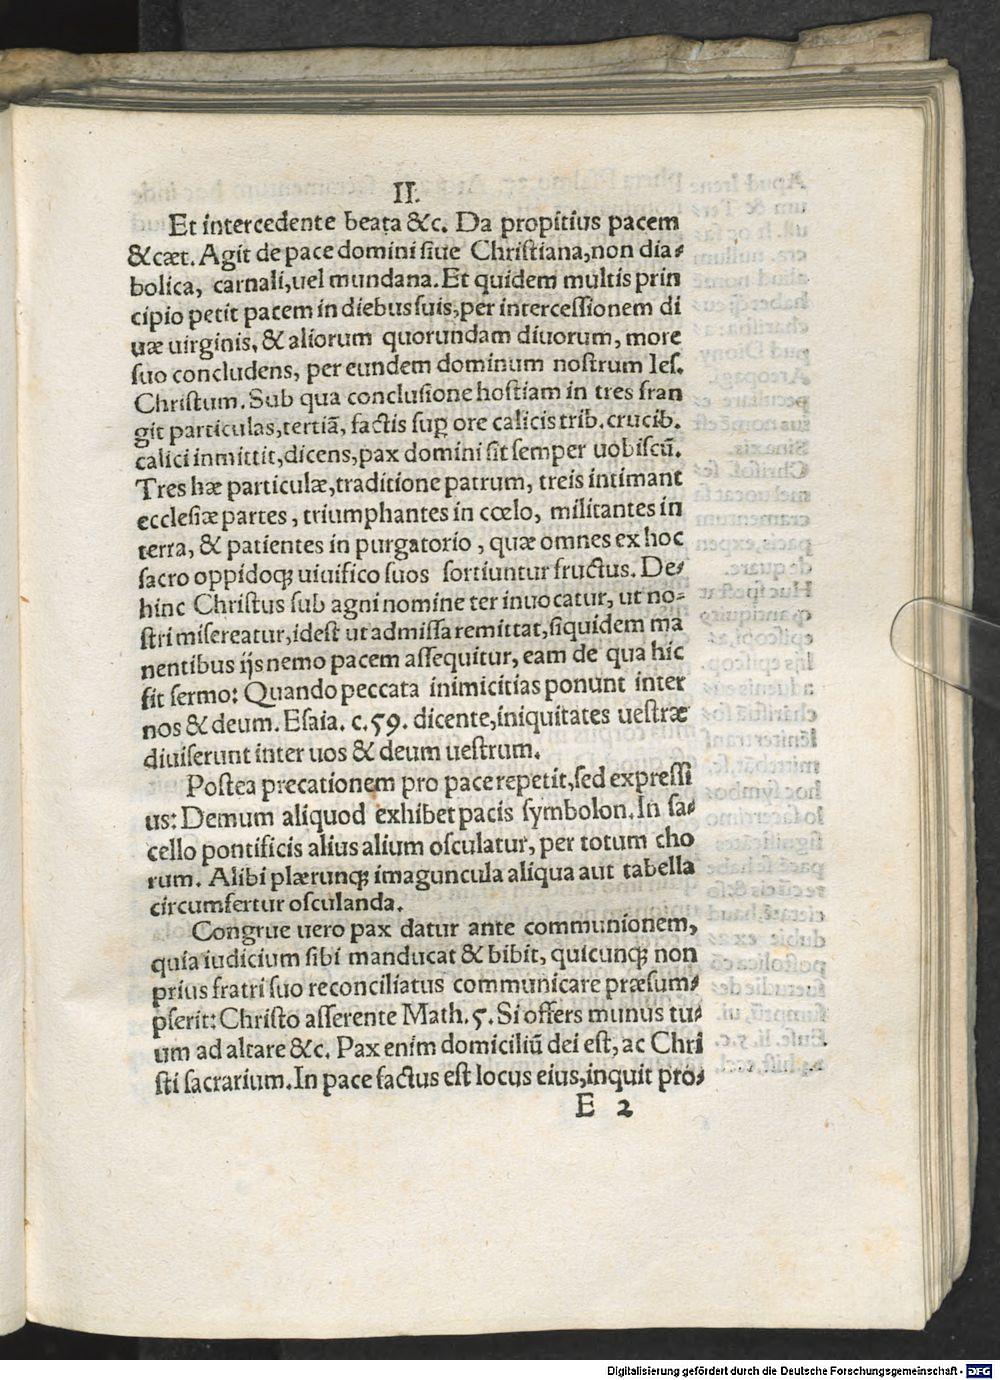 II.
Et intercedente beata &c. Da propitius pacem
&cæt. Agit de pace domini siue Christiana, non dia-
bolica, carnali, uel mundana. Et quidem multis prin
cipio petit pacem in diebus suis, per intercessionem di
uæ uirginis, & aliorum quorundam diuorum, more
suo concludens, per eundem dominum nostrum Ies.
Christum. Sub qua conclusione hostiam in tres fran
git particulas, tertiã, factis suꝑ ore calicis trib. crucib.
calici inmittit, dicens, pax domini sit semper uobiscũ.
Tres hæ particulæ, traditione patrum, treis intimant
ecclesiæ partes, triumphantes in cœlo, militantes in
terra, & patientes in purgatorio, quæ omnes ex hoc
sacro oppidoqꝫ uiuifico suos sortiuntur fructus. De-
hinc Christus sub agni nomine ter inuocatur, ut no-
stri misereatur, idest ut admissa remittat, siquidem ma
nentibus ijs nemo pacem assequitur, eam de qua hic
fit sermo: Quando peccata inimicitias ponunt inter
nos & deum. Esaia. c. 59. dicente, iniquitates uestræ
diuiserunt inter uos & deum uestrum.
Postea precationem pro pace repetit, sed expressi
us: Demum aliquod exhibet pacis symbolon. In sa-
cello pontificis alius alium osculatur, per totum cho
rum. Alibi plærunqꝫ imaguncula aliqua aut tabella
circumfertur osculanda.
Congrue uero pax datur ante communionem,
quia iudicium sibi manducat & bibit, quicunqꝫ non
prius fratri suo reconciliatus communicare præsum-
pserit: Christo asserente Math. 5. Si offers munus tu-
um ad altare &c. Pax enim domiciliũ dei est, ac Chri
sti sacrarium. In pace factus est locus eius, inquit pro-
E 2
Digitalisierung gefördert durch die Deutsche Forschungsgemeinschaft - DFG